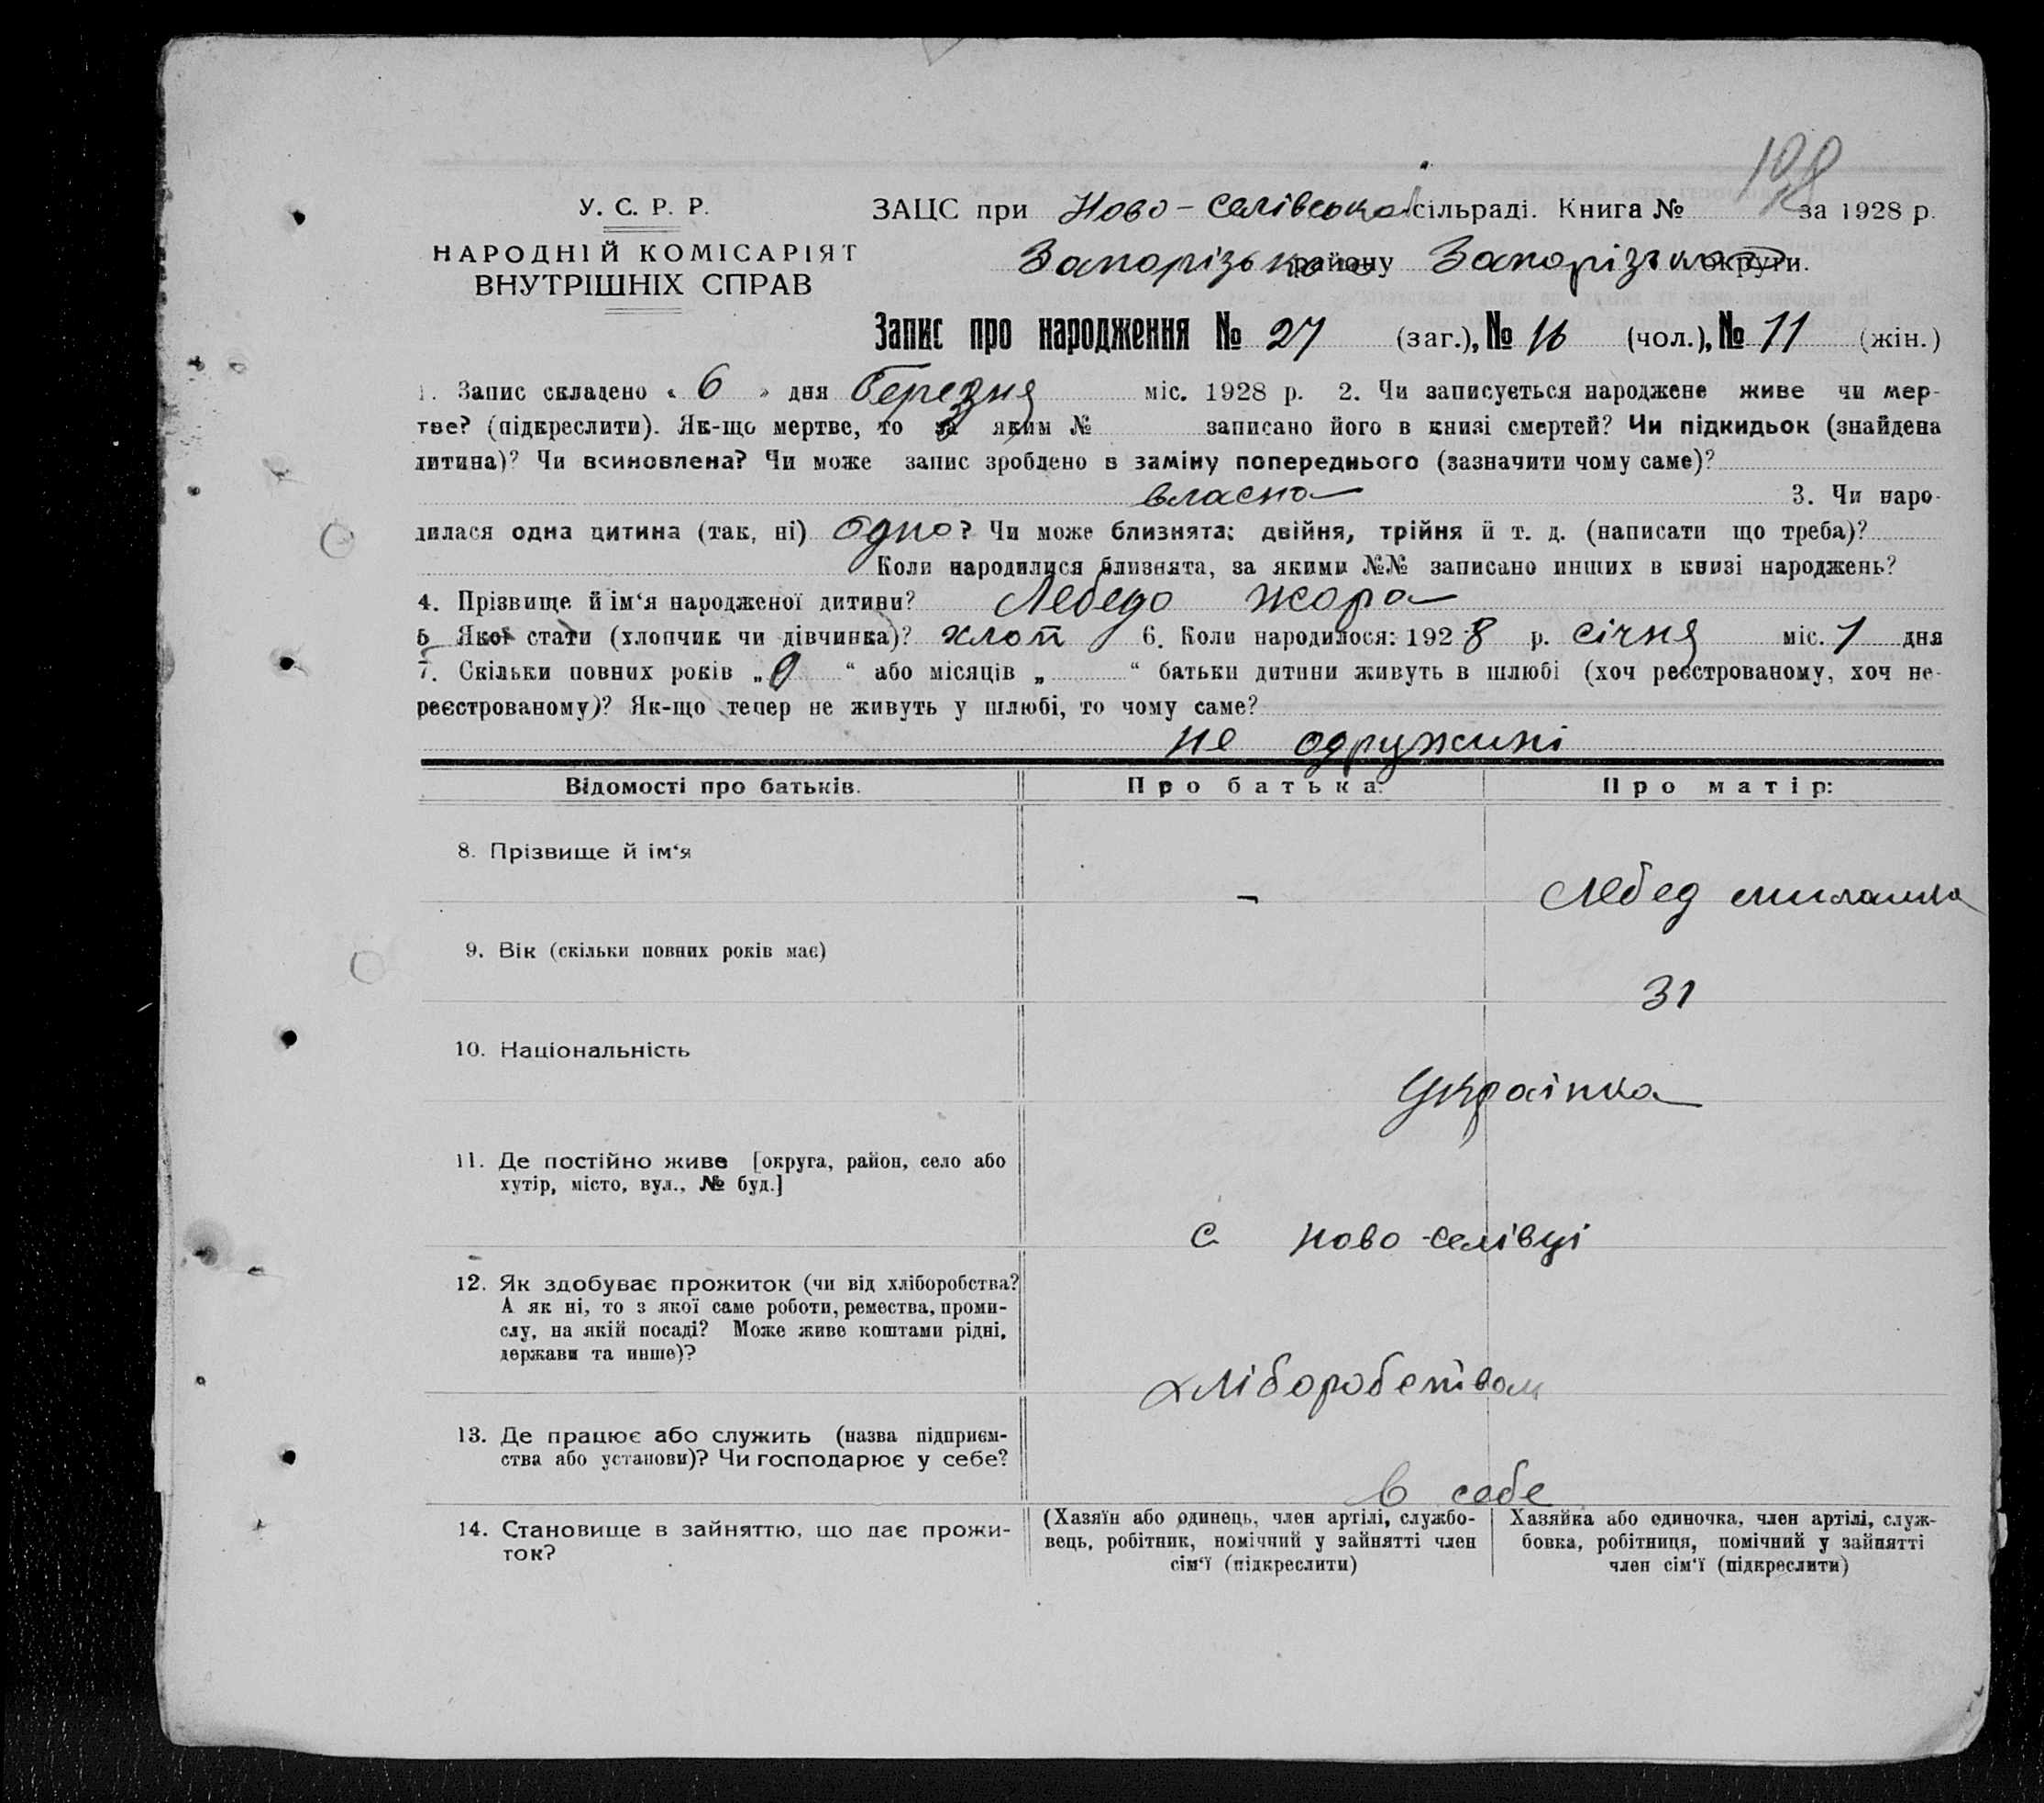 198
У. С. Р. Р.
НАРОДНІЙ КОМІСАРІЯТ
ВНУТРІШНІХ СПРАВ
ЗАЦС при Ново-Селівській сільраді. Книга № за 1928 р.
Запорізького району Запорізької округи.
Запис про народження № 27 (заг.), № 16 (чол.), № 11 (жін.)
1. Запис складено « 6 » дня березня міс. 1928 р. 2. Чи записується народжене живе чи мер-
тве? (підкреслити). Як-що мертве, то за яким № записано його в книзі смертей? Чи підкидьок (знайдена
дитина)? Чи всиновлена? Чи може запис зроблено в заміну попереднього (зазначити чому саме)?
власна 3. Чи наро-
дилася одна дитина (так, ні) одно? Чи може близнята: двійня, трійня й т. д. (написати що треба)?
Коли народилися близнята, за якими №№ записано инших в книзі народжень?
4. Прізвище й ім‘я народженої дитини? Лебедь Жора
5 Якої стати (хлопчик чи дівчинка)? хлоп 6. Коли народилося: 1928 р. січня міс. 1 дня
7. Скільки повних років „ 0 “ або місяців „ “ батьки дитини живуть в шлюбі (хоч реєстрованому, хоч не-
реєстрованому)? Як-що тепер не живуть у шлюбі, то чому саме?
не одружині
Відомості про батьків. Про батька: Про матір:
8. Прізвище й ім‘я
- Лебед Милашка
9. Вік (скільки повних років має)
31
10. Національність
Українка
11. Де постійно живе [округа, район, село або
хутір, місто, вул., № буд.]
с Ново-Селівці
12. Як здобуває прожиток (чи від хліборобства?
А як ні, то з якої саме роботи, ремества, проми-
слу, на якій посаді? Може живе коштами рідні,
держави та инше)?
хліборобством
13. Де працює або служить (назва підприєм-
ства або установи)? Чи господарює у себе?
в себе
14. Становище в зайняттю, що дає прожи-
ток?
(Хазяїн або одинець, член артілі, службо-
вець, робітник, помічний у зайнятті член
сім‘ї (підкреслити)
Хазяйка або одиночка, член артілі, служ-
бовка, робітниця, помічний у зайнятті
член сім‘ї (підкреслити)